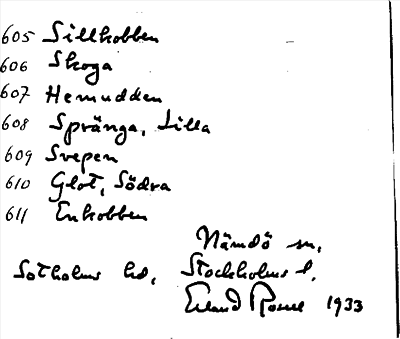 605 Sillkobben
606 Skoga
607 Hemudden
608 Spränga, Lilla
609 Svepen
610 Glot, Södra
611 Enkobben
Nämdö sn,
Sotholms hd, Stockholms l.
Erland Rosell 1933